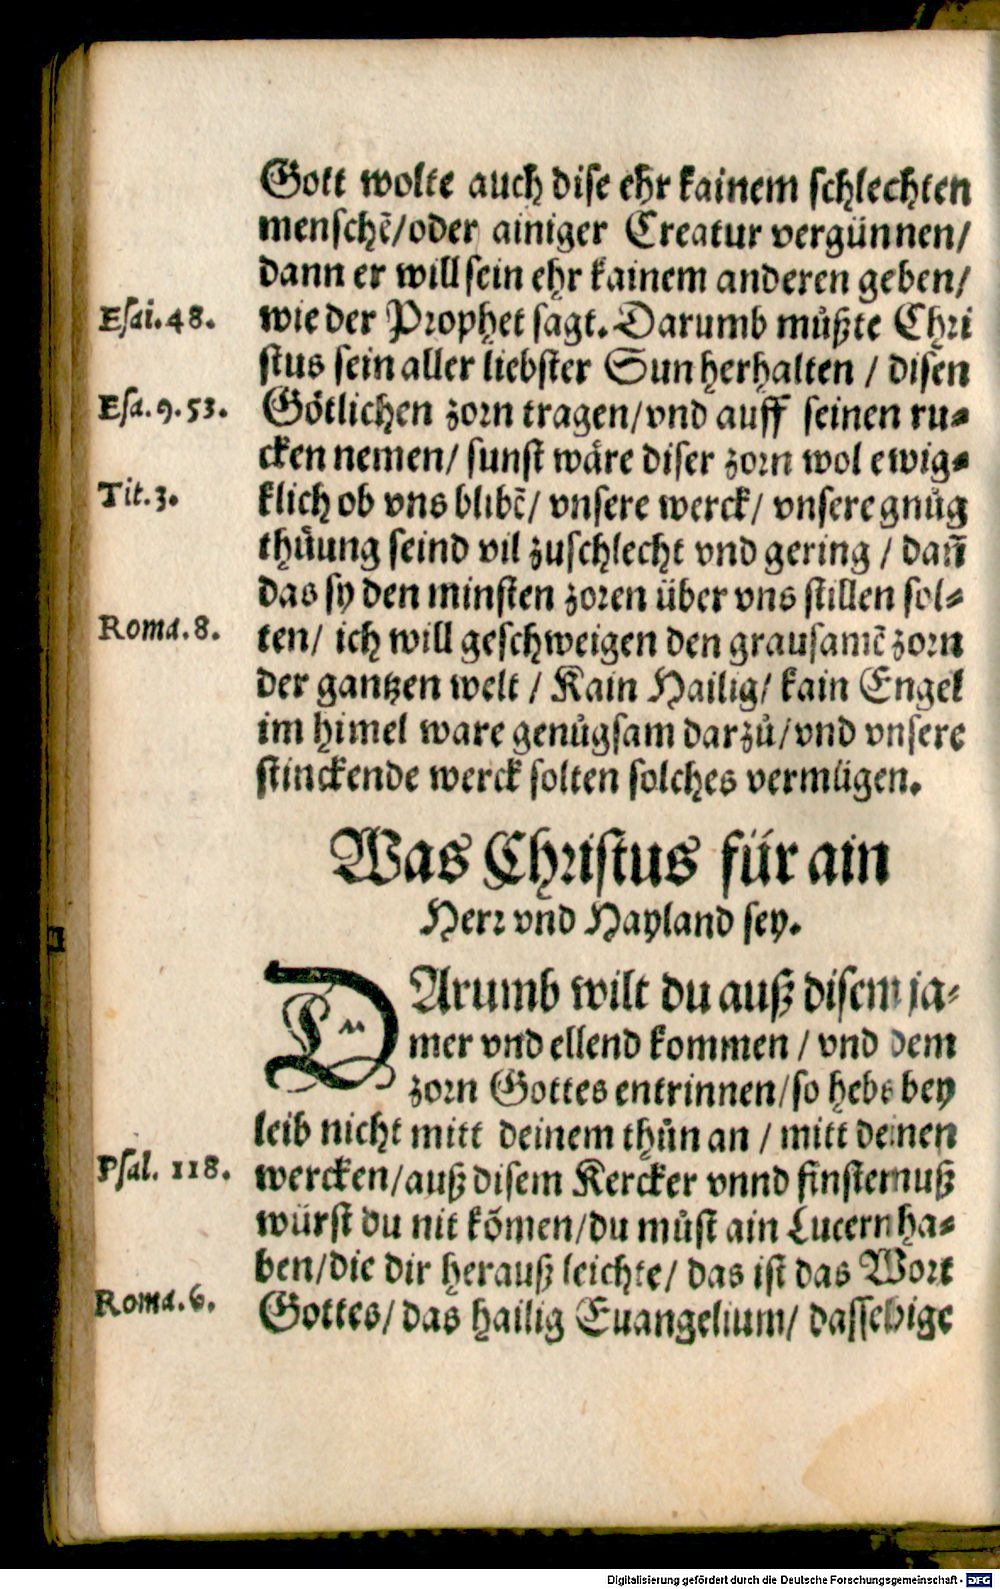 Gott wolte auch dise ehr kainem schlechten
menschẽ/oder ainiger Creatur vergünnen/
dann er will sein ehr kainem anderen geben/
Esai.48.
wie der Prophet sagt. Darumb můßte Chri
stus sein aller liebster Sun herhalten / disen
Esa.9.53.
Götlichen zorn tragen/vnd auff seinen ru⸗
cken nemen/ sunst wäre diser zorn wol ewig⸗
Tit.3.
klich ob vns blibẽ/ vnsere werck/ vnsere gnůg
thůung seind vil zuschlecht vnd gering / dañ
das sy den minsten zoren über vns stillen sol⸗
Roma.8.
ten/ ich will geschweigen den grausamẽ zorn
der gantzen welt / Kain Hailig/ kain Engel
im himel ware genůgsam darzů/vnd vnsere
stinckende werck solten solches vermügen.
Was Christus für ain
Herr vnd Hayland sey.
DArumb wilt du auß disem ja⸗
mer vnd ellend kommen / vnd dem
zorn Gottes entrinnen/so hebs bey
leib nicht mitt deinem thůn an / mitt deinen
Psal. 118.
wercken/auß disem Kercker vnnd finsternuß
würst du nit kõmen/du můst ain Lucern ha⸗
ben/die dir herauß leichte/ das ist das Wort
Roma.6.
Gottes/ das hailig Euangelium/ dasselbige
Digitalisierung gefördert durch die Deutsche Forschungsgemeinschaft - DFG